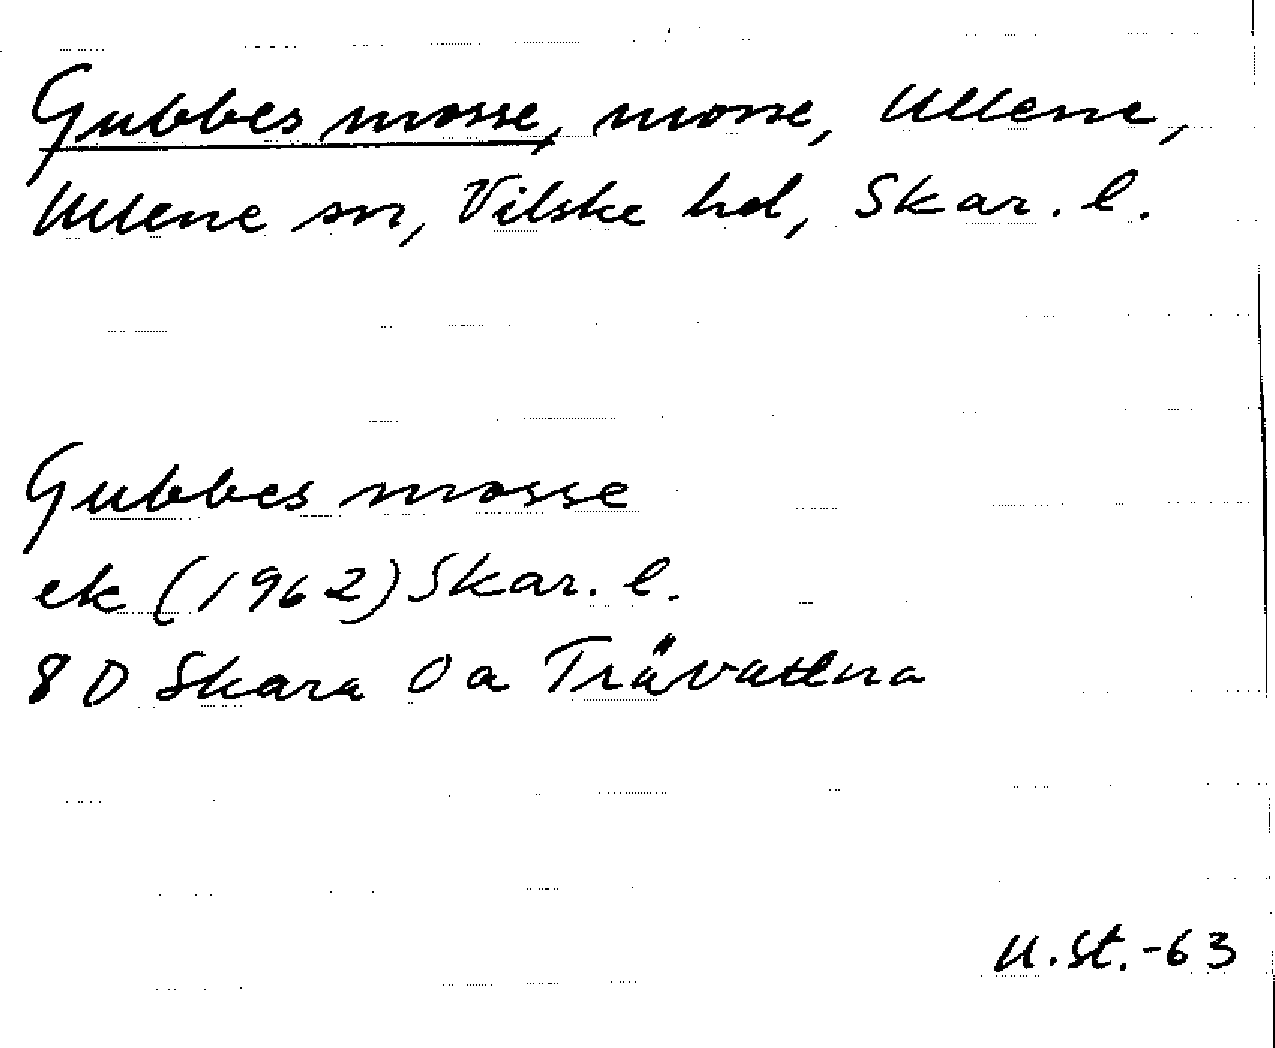 Gubbes mosse, mosse, Ullene,
Ullene sn, Vilske hd, Skar. l.
Gubbes mosse
ek (1962) Skar. l.
8D Skara 0a Trävattna
U.St.-63